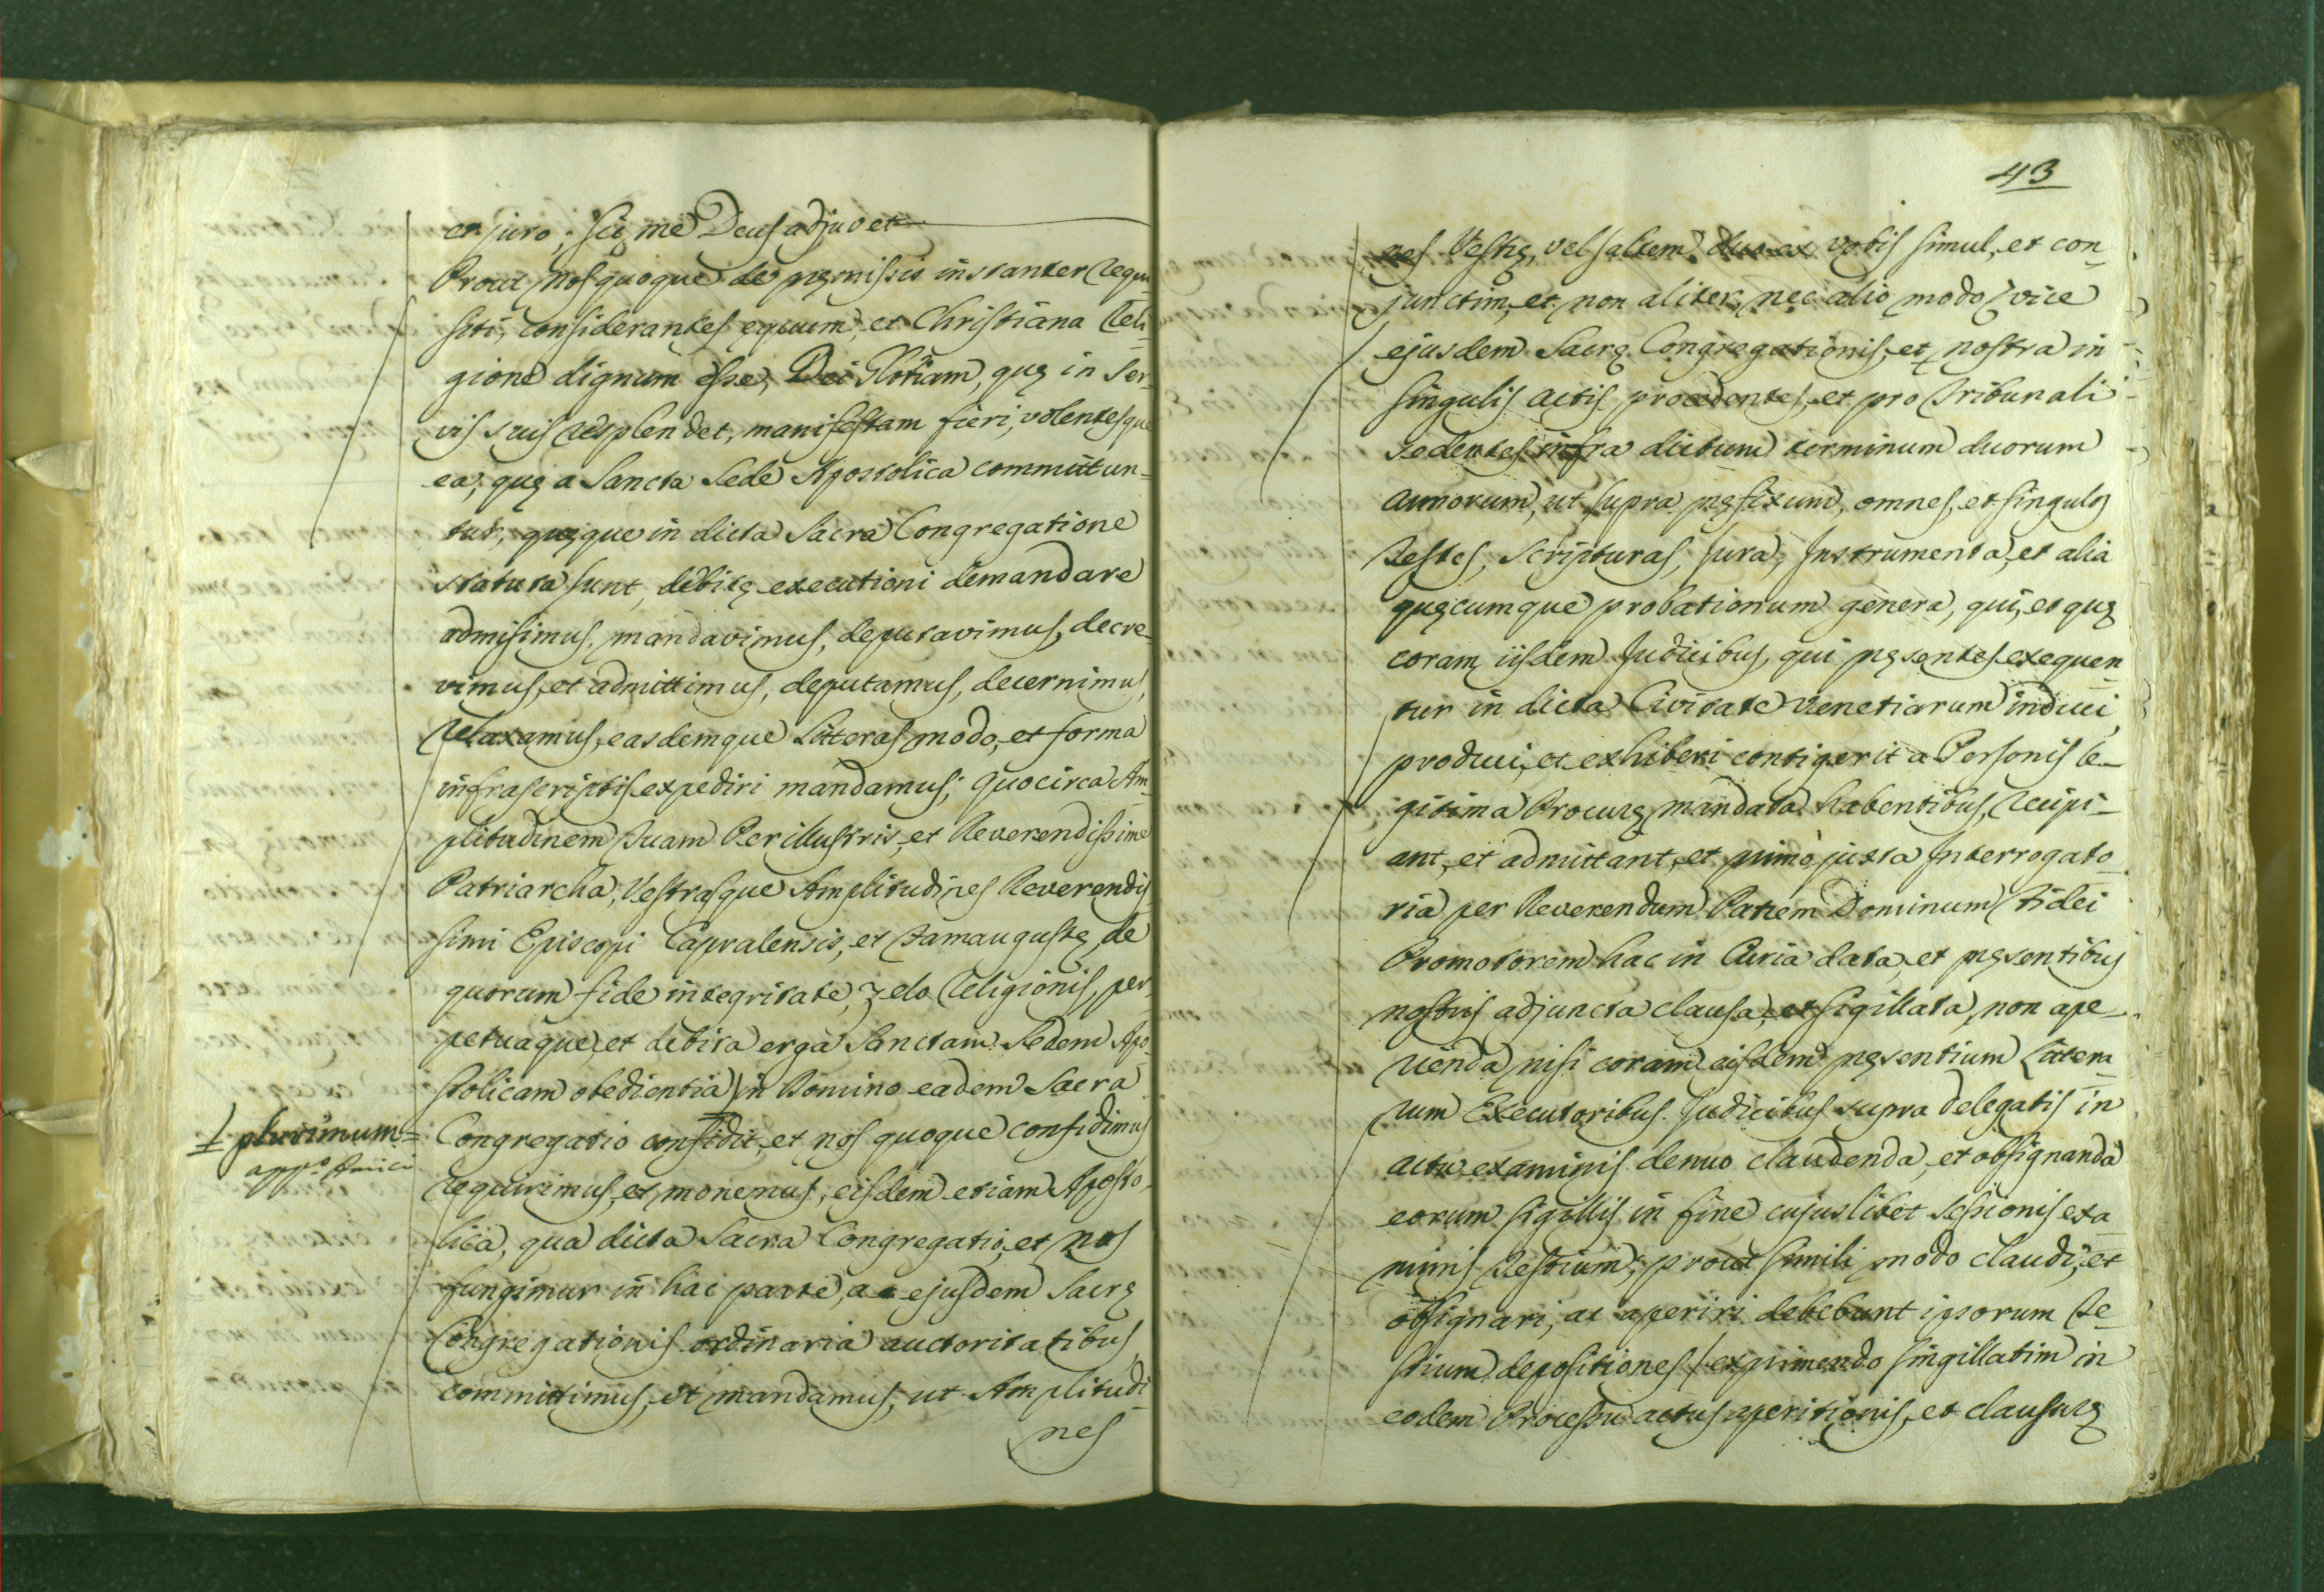 et juro; sic me Deus adjuvet
Prout nos quoque de pręmissis instanter requi
siti, considerantes equum, et Christiana Reli-
gione dignum esse, Dei Gloriam, quę in ser-
vis suis resplendet, manifestam fieri, volentesque
ea, quę a Sancta Sede Apostolica committun-
tur, quęque in dicta Sacra Congregatione
statuta sunt, debitę executioni demandare
admisimus, mandavimus, deputavimus, decre-
vimus, et admittimus, deputamus, decernimus,
relaxamus, easdemque Litteras modo, et forma
infrascriptis expediri mandamus; quocirca Am-
plitudinem Tuam Perillustris, et Reverendissime
Patriarcha, Vestrasque Amplitudines Reverendis
simi Episcopi Caprulensis, et Famaugustę de
quorum fide integritate, zelo Religionis, per-
petuaque, et debita erga Sanctam Sedem Apo-
stolicam obedientia in Domino eadem Sacra
⊥ plurimum=
Congregatio confidit, et nos quoque confidimus
requirimus, et monemus, eisdem etiam Aposto-
lica, qua dicta Sacra Congregatio, et nos
fungimur in hac parte, ac ejusdem Sacrę
Congregationis ordinaria auctoritatibus
committimus, et mandamus, ut Amplitudi
nes
43
nes Vestrę, vel saltem duo ex vobis simul, et con-
junctim, et non aliter, nec alio modo, vice
ejusdem Sacrę Congregationis, et nostra in
singulis actis procedentes, et pro Tribunali
sedentes infra dictum terminum duorum
annorum, ut supra pręfixum, omnes, et singulos
Testes, Scripturas, Jura, Instrumenta, et alia
quęcumque probationum genera, qui, et quę
coram iisdem Judicibus, qui pręsentes exequen-
tur in dicta Civitate Venetiarum induci,
produci, et exhiberi contigerit a Personis le-
gitima Procurę mandata habentibus, recipi-
ant, et admittant, et primò juxta Interrogato-
ria per Reverendum Patrem Dominum Fidei
Promotorem hac in Curia data, et pręsentibus
nostris adjuncta clausa, et sigillata, non ape-
rienda, nisi coram eisdem pręsentium Littera-
rum Executoribus Judicibus supra delegatis in
actu examinis denuo claudenda, et obsignanda
eorum sigillis in fine cujuslibet Sessionis exa-
minis Testium; prout simili modo claudi, et
obsignari, ac aperiri debebunt ipsorum Te-
stium depositiones, exprimendo singillatim in
eodem Processu actus aperitionis, et clausurę